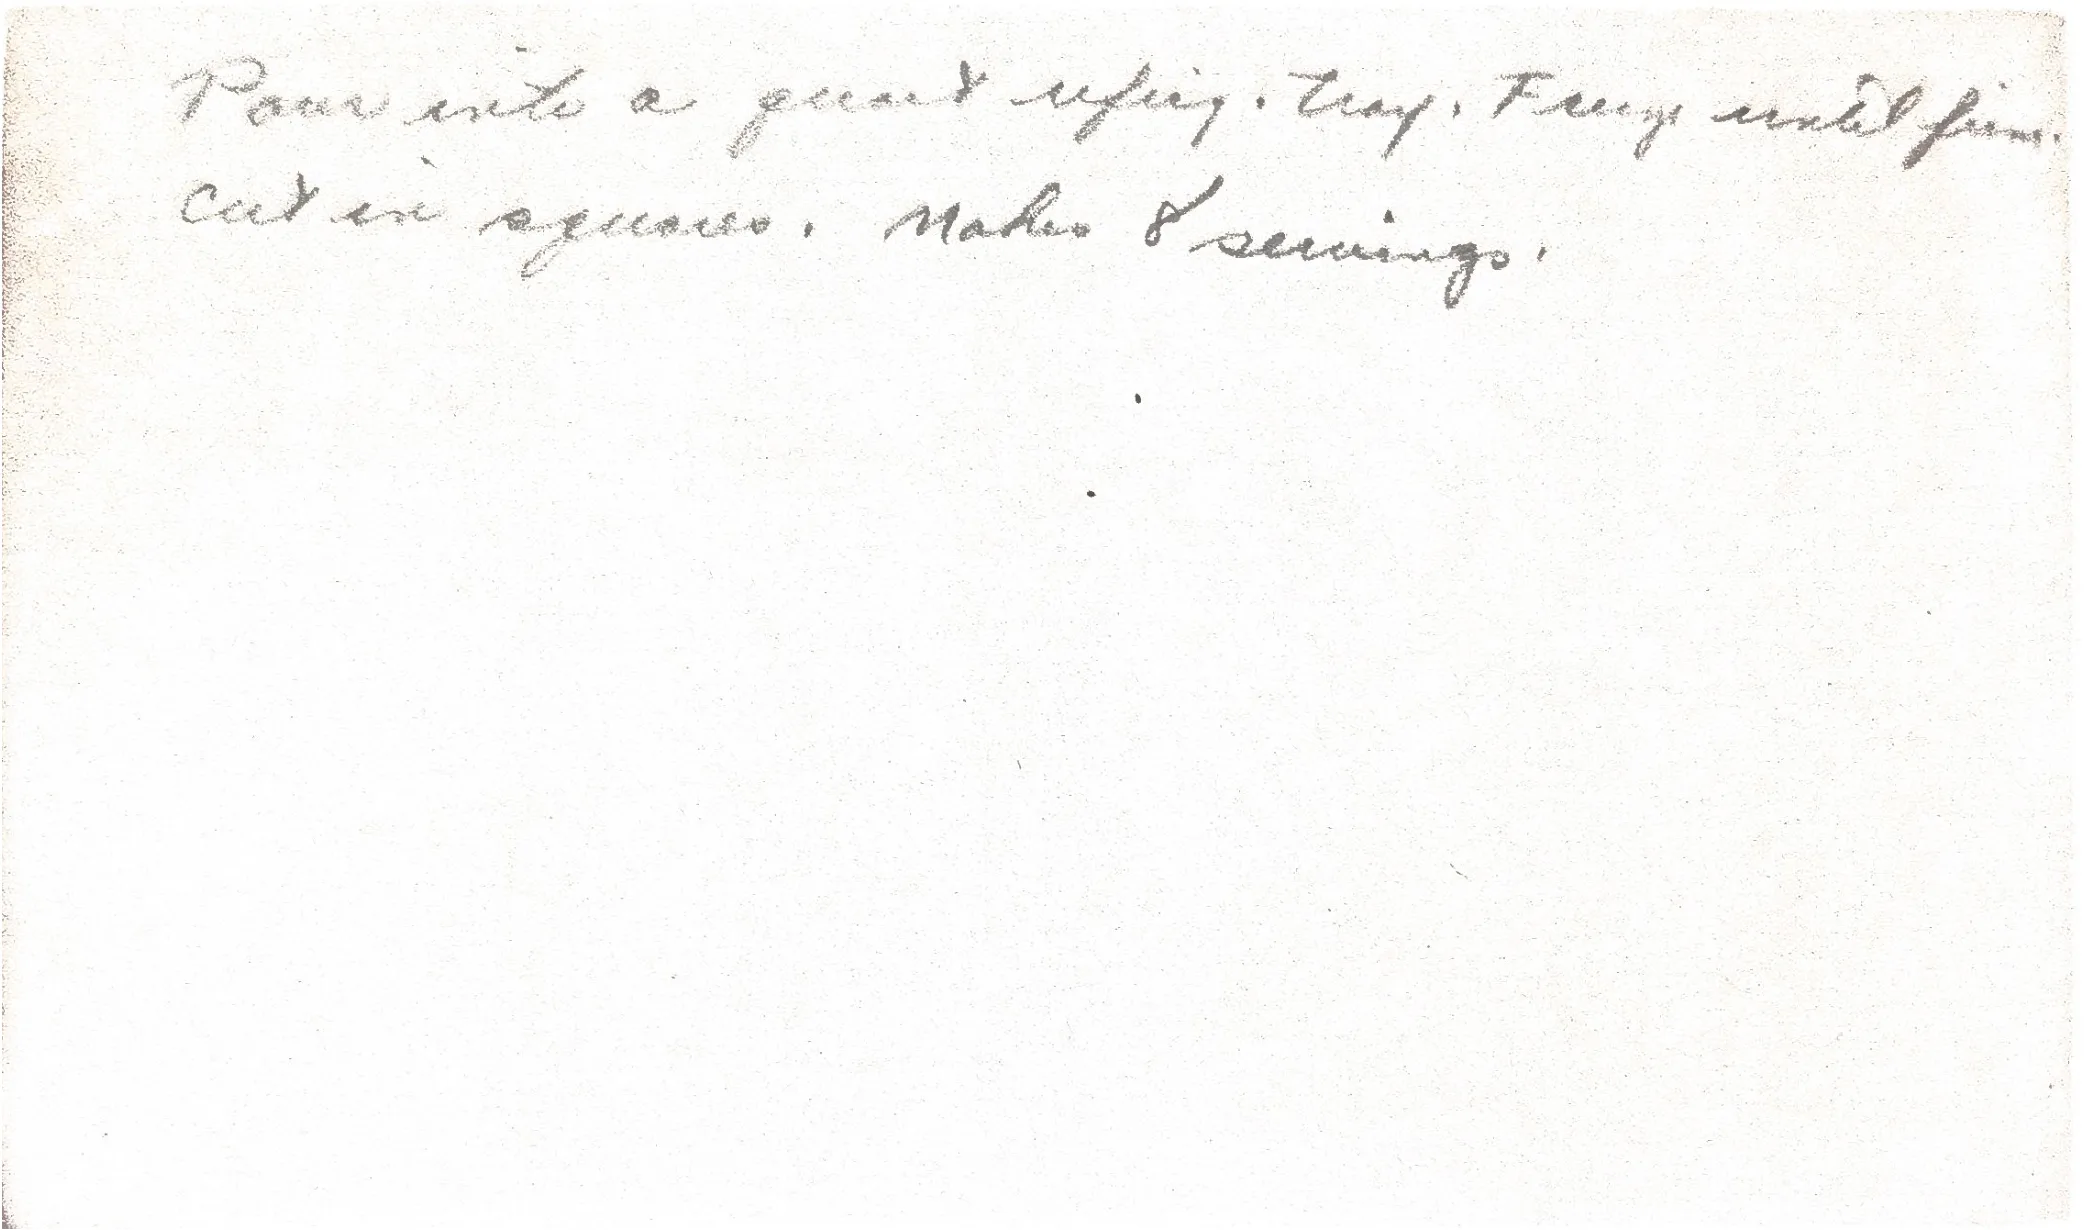 Pour into a quart refrig. tray. Freeze until firm.
Cut in squares. Makes 8 servings.